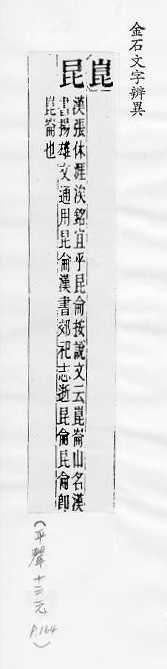 金石文字辨異
崑
昆
漢張休涯涘銘宜乎昆侖按說文云崑崙山名漢
書揚雄文通用昆侖漢書郊祀志逝昆侖昆侖即
崑崙也
(平聲十三元 P.164)